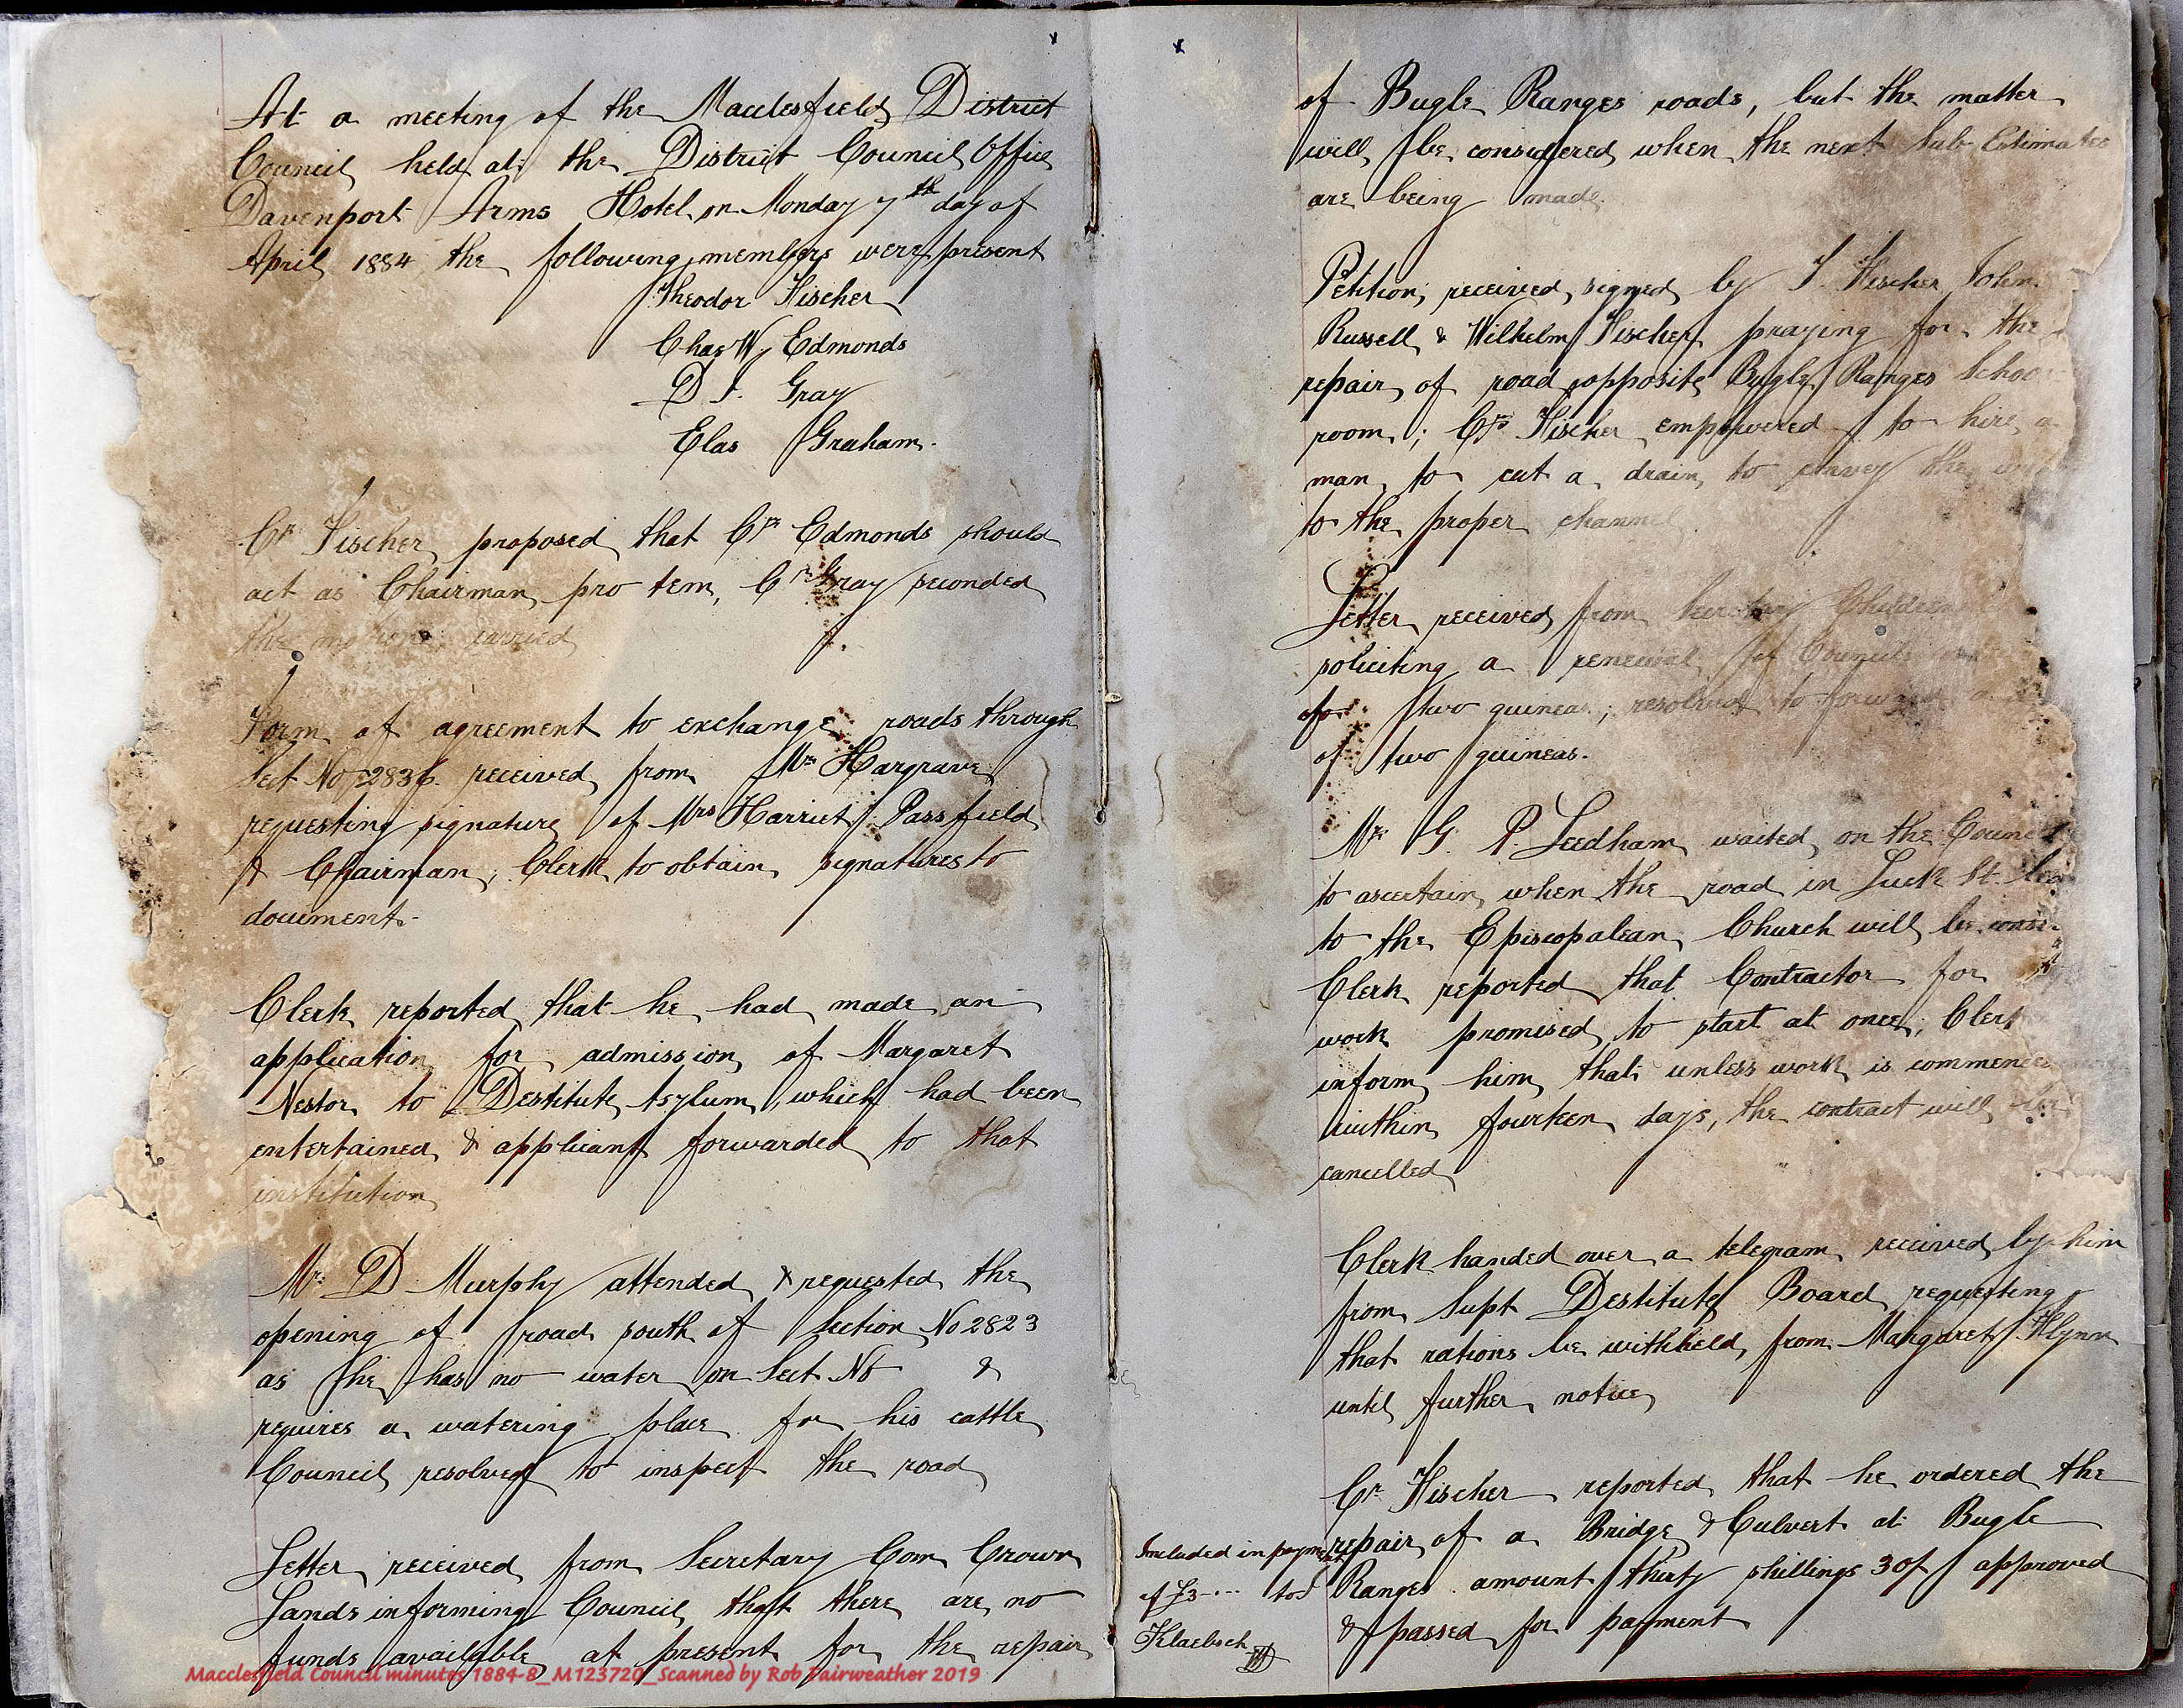 At a meeting of the Macclesfield District
Council held at the District Council Office
Davenport Arms Hotel on Monday 7th day of
April 1884 the following members were present
Theodor Fischer
Chas W Edmonds
D. J. Gray
Elas Graham.
Cr Fischer proposed that Cr Edmonds should
act as Chairman pro tem, Cr Gray seconded
the motion; carried
Form of agreement to exchange roads through
Sect No 2836 received from Mr Hargrave
requesting signature of Mrs Harriet Passfield
& Chairman, Clerk to obtain signatures to
document.
Clerk reported that he had made an
application for admission of Margaret
Nestor to Destitute Asylum, which had been
entertained & applicant forwarded to that
institution
Mr D Murphy attended & requested the
opening of road south of Section No 2823
as he has no water on Sect. No &
requires a watering place for his cattle
Council resolved to inspect the road
Letter received from Secretary Com Crown
Lands informing Council that there are no
funds available at present for the repair
Macclesfield Council minutes 1884-8_M123720_Scanned by Rob Fairweather 2019
of Bugle Ranges roads, but the matter
will be considered when the next Sub Estimates
are being made.
Petition received signed by T. Fischer John
Russell & Wilhelm Fischer praying for the
repair of road opposite Bugle Ranges School
room; Cr Fischer empowered to hire a
man to cut a drain to convey the
to the proper channel
Letter received from Secretary Children
soliciting a renewal of Councils
of two guineas; resolved to forward a
of two guineas.
Mr G. P. Leedham waited on the Council
to ascertain when the road in Luck St.
to the Episcopalean Church will be
Clerk reported that Contractor for
work promised to start at once; Clerk
inform him that unless work is commenced
within fourteen days, the contract will be
cancelled
Clerk handed over a telegram received by him
from Supt Destitute Board requesting
that rations be withheld from Margaret Flynn
until further notice
Cr Fischer reported that he ordered the
repair of a Bridge & Culvert at Bugle
Ranges amount thirty shillings 30/ approved
& passed for payment
Included in payment
of £3 to
Klaebsch